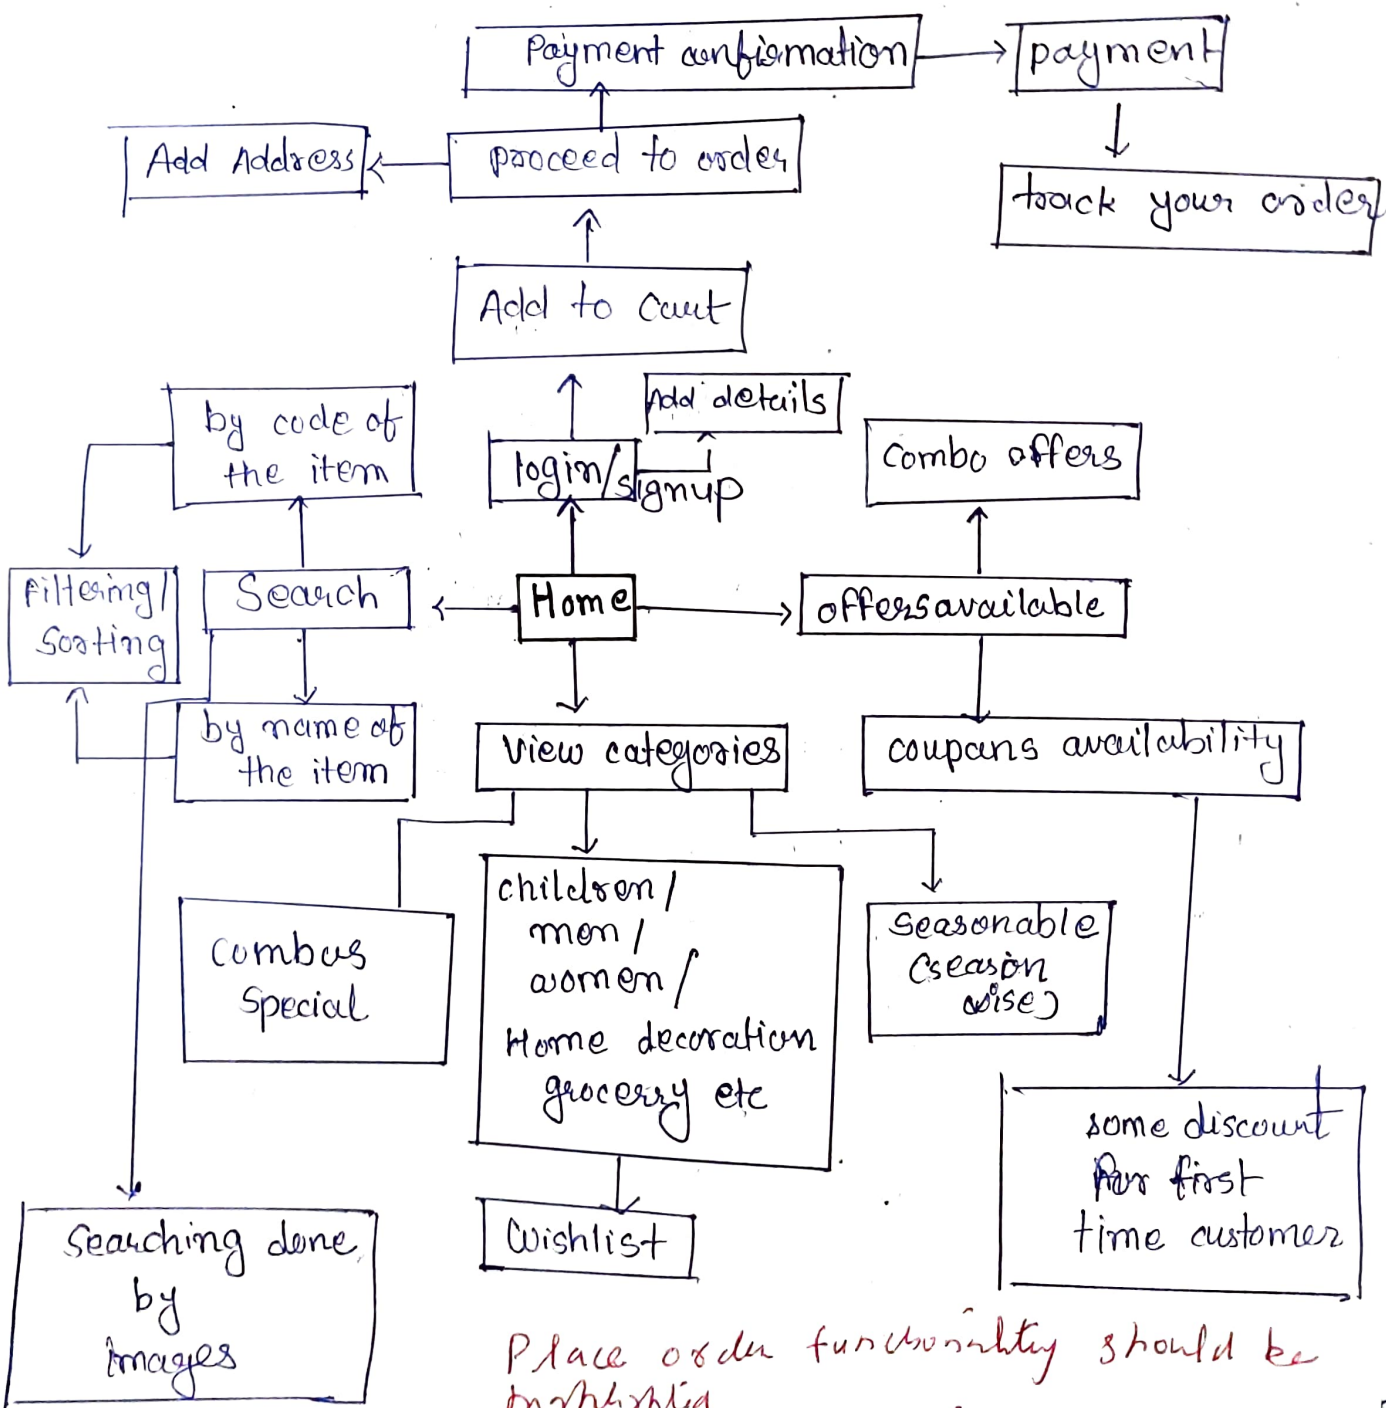 Payment confirmation
payment
Add Address
proceed to order
track your order
Add to Cart
Add details
by code of
the item
login/signup
combo offers
Filtering/
Sorting
Search
Home
offers available
by name of
the item
view categories
coupans availability
children/
men/
women/
Home decoration
grocerry etc
combus
special
seasonable
(season
wise)
some discount
for first
time customer
Searching done
by
images
Wishlist
Place order functionality should be